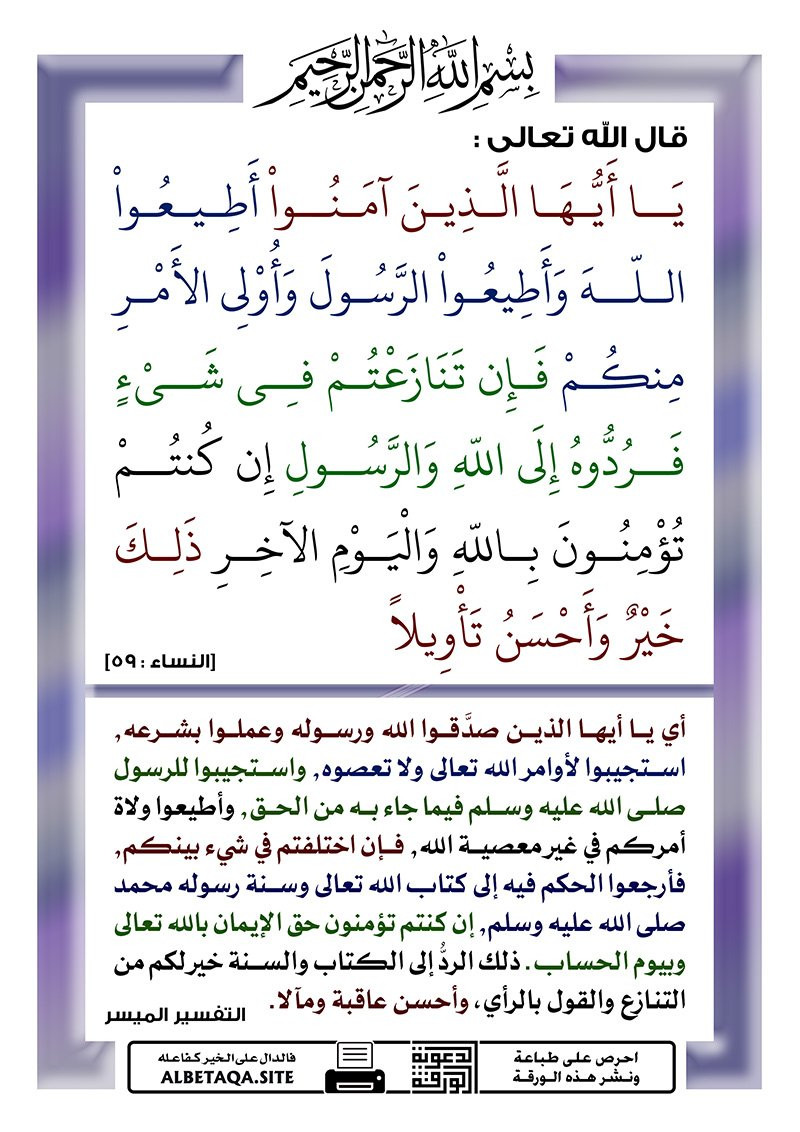 بِسْمِ اللَّهِ الرَّحْمَنِ الرَّحِيمِ
قال الله تعالى :
يَا أَيُّهَا الَّذِينَ آمَنُواْ أَطِيعُواْ
اللّهَ وَأَطِيعُواْ الرَّسُولَ وَأُوْلِي الأَمْرِ
مِنكُمْ فَإِن تَنَازَعْتُمْ فِي شَيْءٍ
فَرُدُّوهُ إِلَى اللّهِ وَالرَّسُولِ إِن كُنتُمْ
تُؤْمِنُونَ بِاللّهِ وَالْيَوْمِ الآخِرِ ذَلِكَ
خَيْرٌ وَأَحْسَنُ تَأْوِيلاً
[النساء : ٥٩]
أي يا أيها الذين صدَّقوا الله ورسوله وعملوا بشرعه,
استجيبوا لأوامر الله تعالى ولا تعصوه, واستجيبوا للرسول
صلى الله عليه وسلم فيما جاء به من الحق, وأطيعوا ولاة
أمركم في غير معصية الله, فإن اختلفتم في شيء بينكم,
فأرجعوا الحكم فيه إلى كتاب الله تعالى وسنة رسوله محمد
صلى الله عليه وسلم, إن كنتم تؤمنون حق الإيمان بالله تعالى
وبيوم الحساب. ذلك الردُّ إلى الكتاب والسنة خير لكم من
التنازع والقول بالرأي، وأحسن عاقبة ومآلا.
التفسير الميسر
احرص على طباعة
ونشر هذه الورقة
الورقة
الدعوية
فالدال على الخير كفاعله
ALBETAQA.SITE